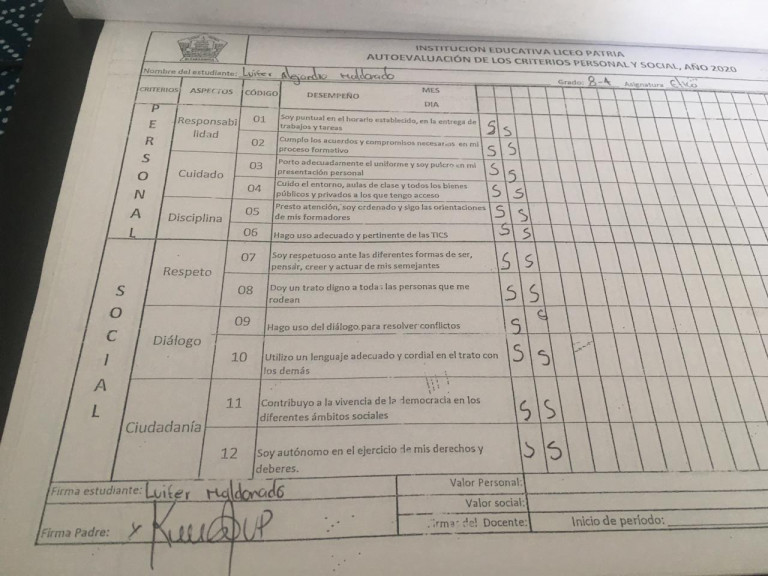 INSTITUCION EDUCATIVA LICEO PATRIA
AUTOEVALUACIÓN DE LOS CRITERIOS PERSONAL Y SOCIAL, AÑO 2020
Nombre del estudiante: Luiter Alejandro maldonado Grado: 8-4 Asignatura
CRITERIOS ASPECTOS CÓDIGO DESEMPEÑO MES
DIA
PERSONAL
Responsabilidad
01 Soy puntual en el horario establecido, en la entrega de
trabajos y tareas S S
02 Cumplo los acuerdos y compromisos necesarios en mi
proceso formativo S S
Cuidado
03 Porto adecuadamente el uniforme y soy pulcro en mi
presentación personal S S
04 Cuido el entorno, aulas de clase y todos los bienes
públicos y privados a los que tengo acceso S S
Disciplina
05 Presto atención, soy ordenado y sigo las orientaciones
de mis formadores S S
06 Hago uso adecuado y pertinente de las TICS S S
SOCIAL
Respeto
07 Soy respetuoso ante las diferentes formas de ser,
pensar, creer y actuar de mis semejantes S S
08 Doy un trato digno a todas las personas que me
rodean S S
Diálogo
09 Hago uso del diálogo para resolver conflictos S S
10 Utilizo un lenguaje adecuado y cordial en el trato con
los demás S S
Ciudadanía
11 Contribuyo a la vivencia de la democracia en los
diferentes ámbitos sociales S S
12 Soy autónomo en el ejercicio de mis derechos y
deberes. S S
Firma estudiante: Luiter maldonado Valor Personal:
Valor social:
Firma Padre: x Firma del Docente: Inicio de período: